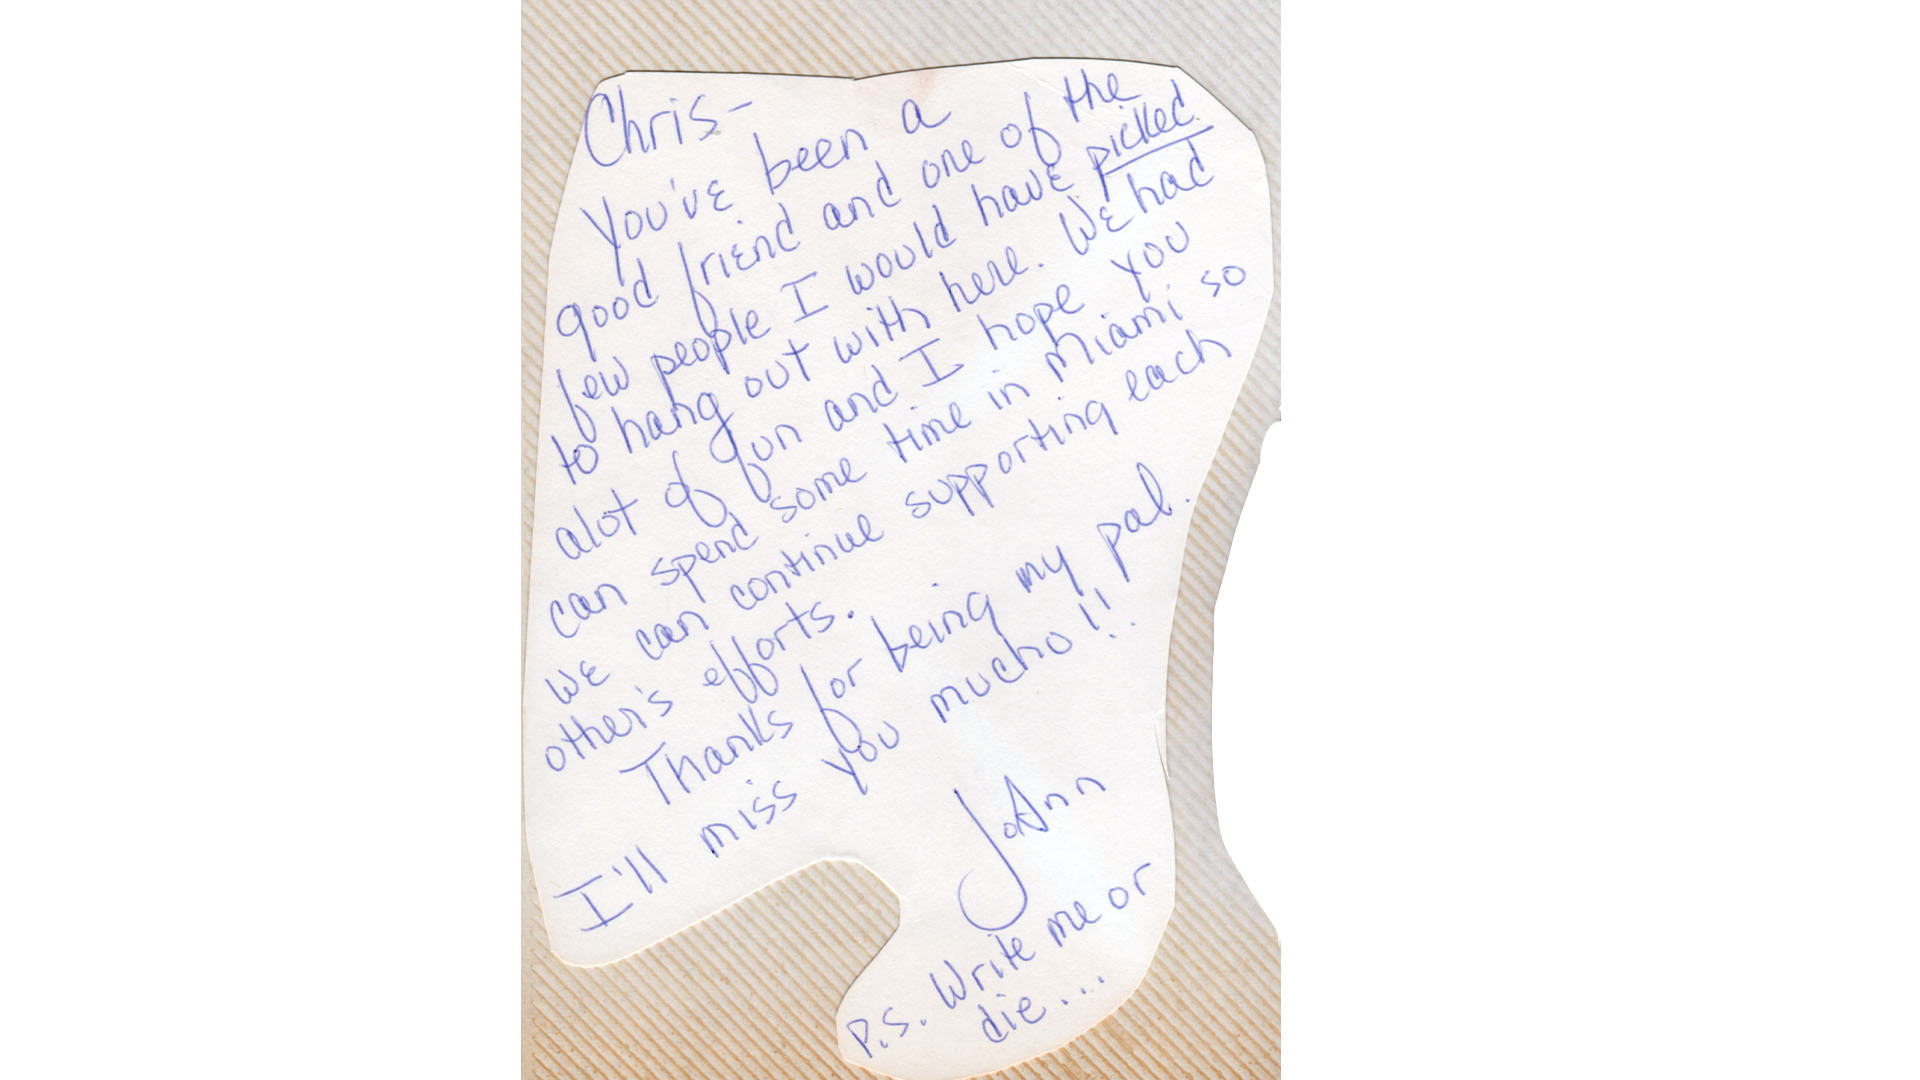 Chris-
You've been a
good friend and one of the
few people I would have picked
to hang out with here. We had
alot of fun and I hope you
can spend some time in Miami so
we can continue supporting each
other's efforts.
Thanks for being my pal.
I'll miss you mucho!!
JoAnn
P.S. Write me or
die....